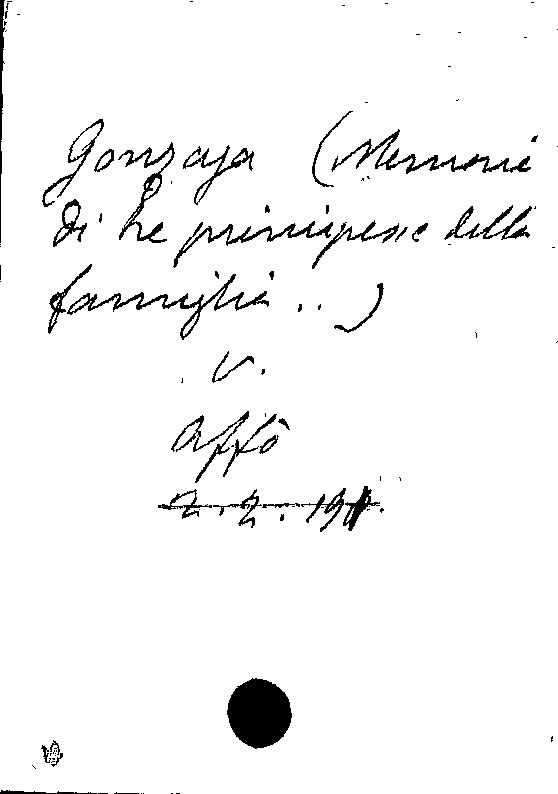 Gonzaga (Memorie
di tre principesse della
famiglia . . )
v.
Affò
2.2.191.